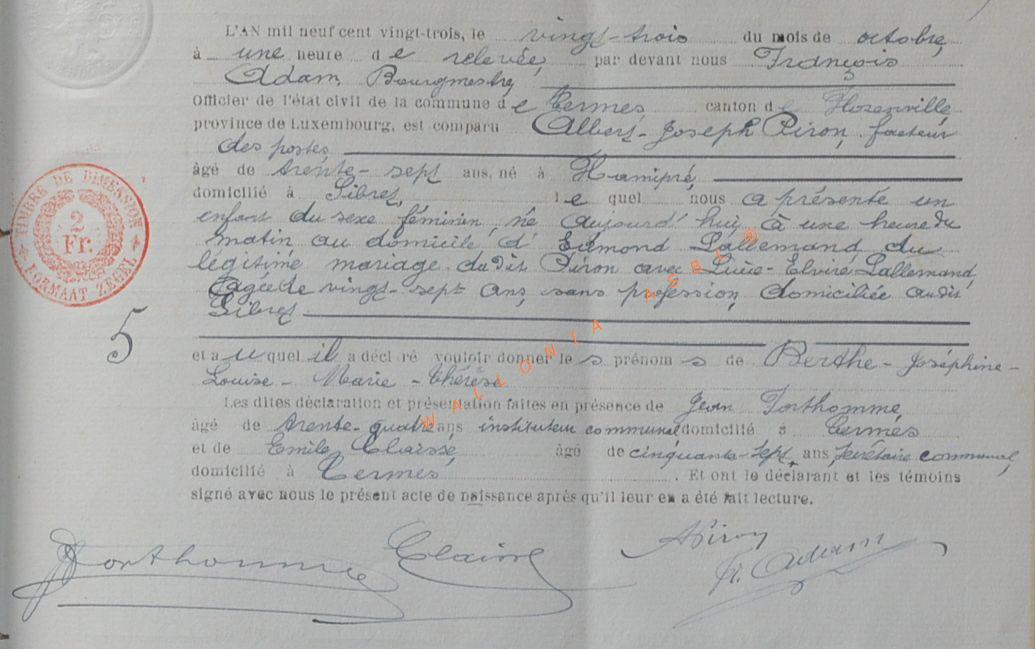 L'AN mil neuf cent vingt-trois, le vingt-trois du mois de octobre,
à une heure de relevée, par devant nous François
Adam, Bourgmestre,
Officier de l'état civil de la commune de Termes canton de Florenville
province de Luxembourg, est comparu Albert-Joseph Piron, facteur
des postes
âgé de trente-sept ans, né à Hamipré,
domicilié à Sibret, lequel nous a présenté un
enfant du sexe féminin, né aujourd'hui à une heure du
matin au domicile d'Edmond Lallemand, du
légitime mariage dudit Piron avec Lucie-Elvire Lallemand,
agée de vingt-sept ans, sans profession, domiciliée audit
Sibret
et auquel il a déclaré vouloir donner les prénoms de Berthe-Joséphine-
Louise-Marie-Thérèse
Les dites déclaration et présentation faites en présence de Jean Forthomme,
âgé de trente-quatre ans instituteur communal domicilié à Termes
et de Emile Claisse, âgé de cinquante-sept ans, secrétaire communal,
domicilié à Termes. Et ont le déclarant et les témoins
signé avec nous le présent acte de naissance après qu'il leur en a été fait lecture.
TIMBRE DE DIMENSION
2
Fr.
FORMAAT ZEGEL
5
WALLONIA ASBL
Forthomme Claisse APiron
Fr. Adam